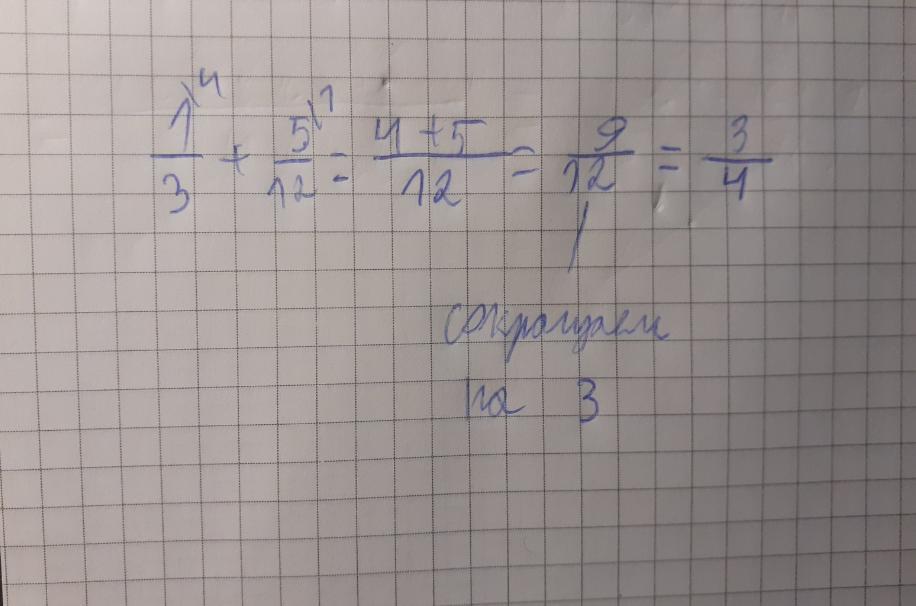 1\4/3 + 5\1/12 = 4+5/12 = 9/12 = 3/4
сокращаем
на 3